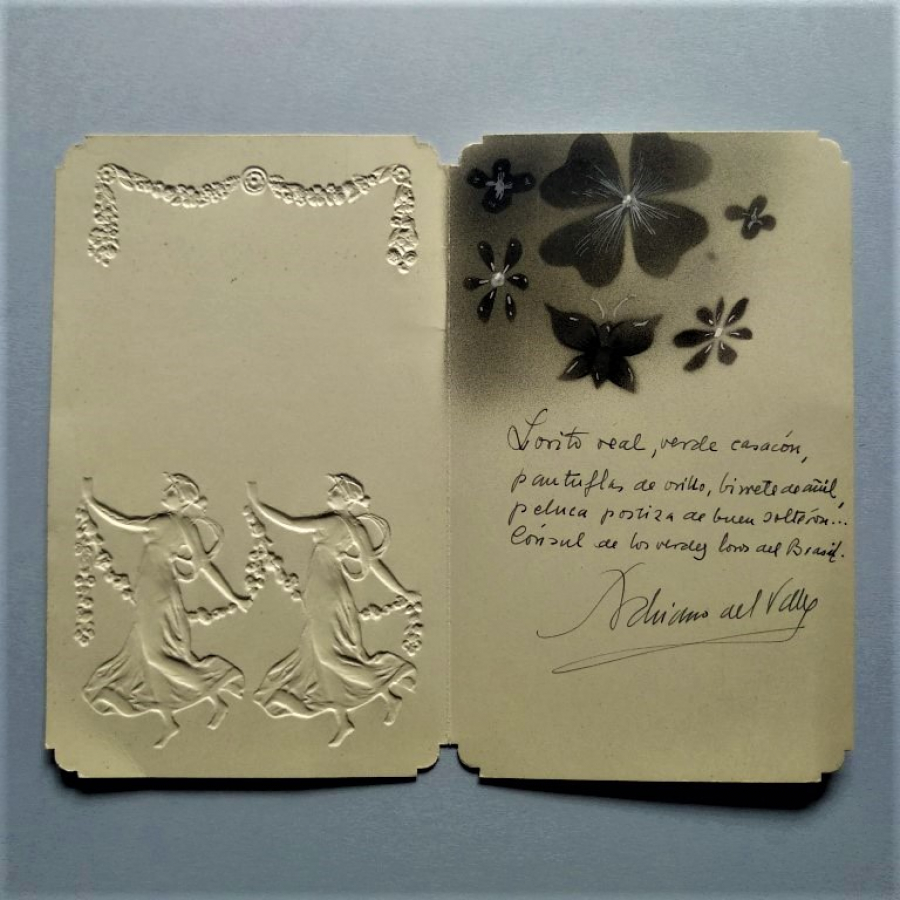 Lorito real, verde casacón,
pantuflas de orillo, birrete de añil,
peluca postiza de buen solterón...
Cónsul de los verdes loros del Brasil.
Adriano del Valle